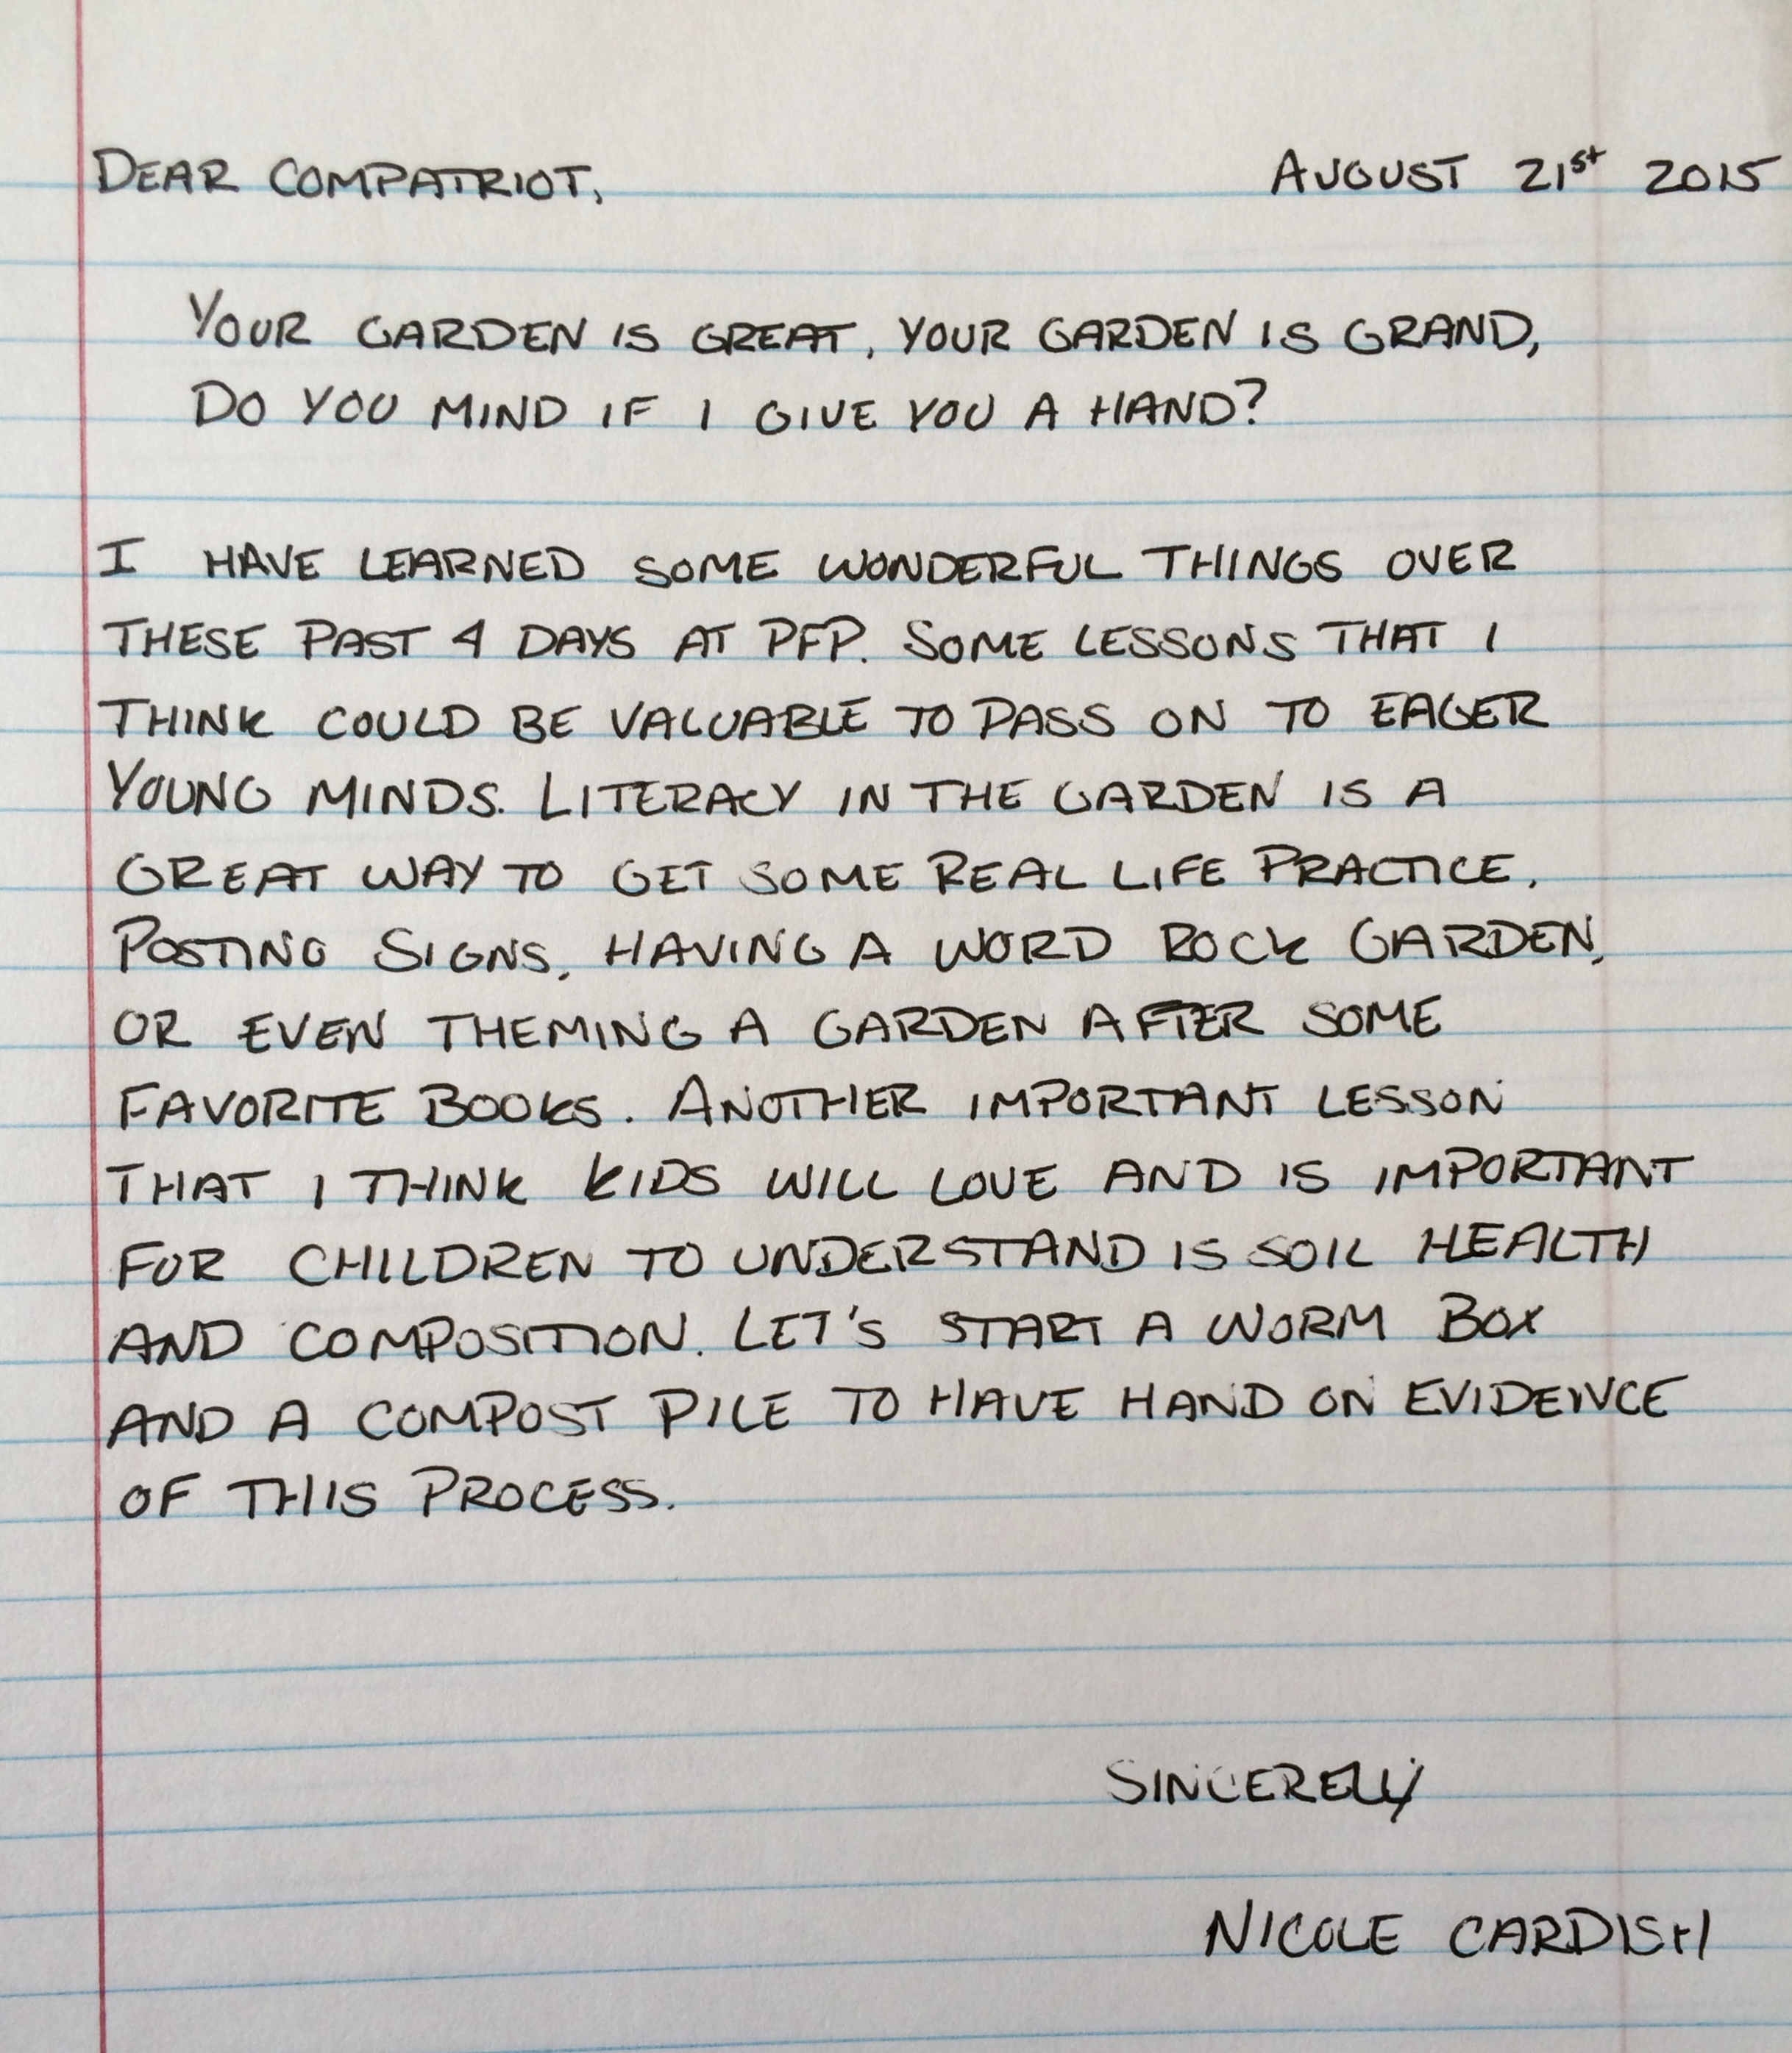 DEAR COMPATRIOT, AUGUST 21st 2015
YOUR GARDEN IS GREAT, YOUR GARDEN IS GRAND,
DO YOU MIND IF I GIVE YOU A HAND?
I HAVE LEARNED SOME WONDERFUL THINGS OVER
THESE PAST 4 DAYS AT PFP. SOME LESSONS THAT I
THINK COULD BE VALUABLE TO PASS ON TO EAGER
YOUNG MINDS. LITERACY IN THE GARDEN IS A
GREAT WAY TO GET SOME REAL LIFE PRACTICE.
POSTING SIGNS, HAVING A WORD ROCK GARDEN,
OR EVEN THEMING A GARDEN AFTER SOME
FAVORITE BOOKS. ANOTHER IMPORTANT LESSON
THAT I THINK KIDS WILL LOVE AND IS IMPORTANT
FOR CHILDREN TO UNDERSTAND IS SOIL HEALTH
AND COMPOSITION. LET'S START A WORM BOX
AND A COMPOST PILE TO HAVE HAND ON EVIDENCE
OF THIS PROCESS.
SINCERELY
NICOLE CARDISH